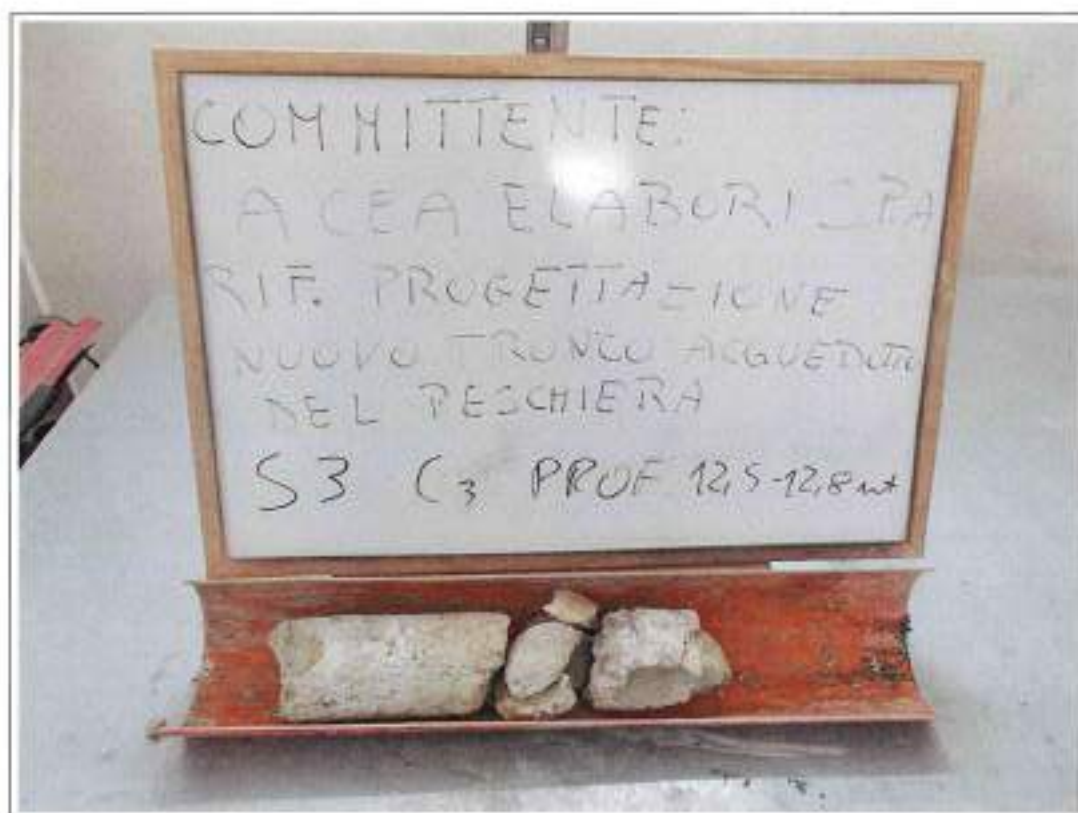 COMMITTENTE:
ACEA ELABORI SPA
RIF. PROGETTAZIONE
NUOVO TRONCO ACQUEDOTTO
DEL PESCHIERA
S3 C3 PROF 12,5-12,8 mt